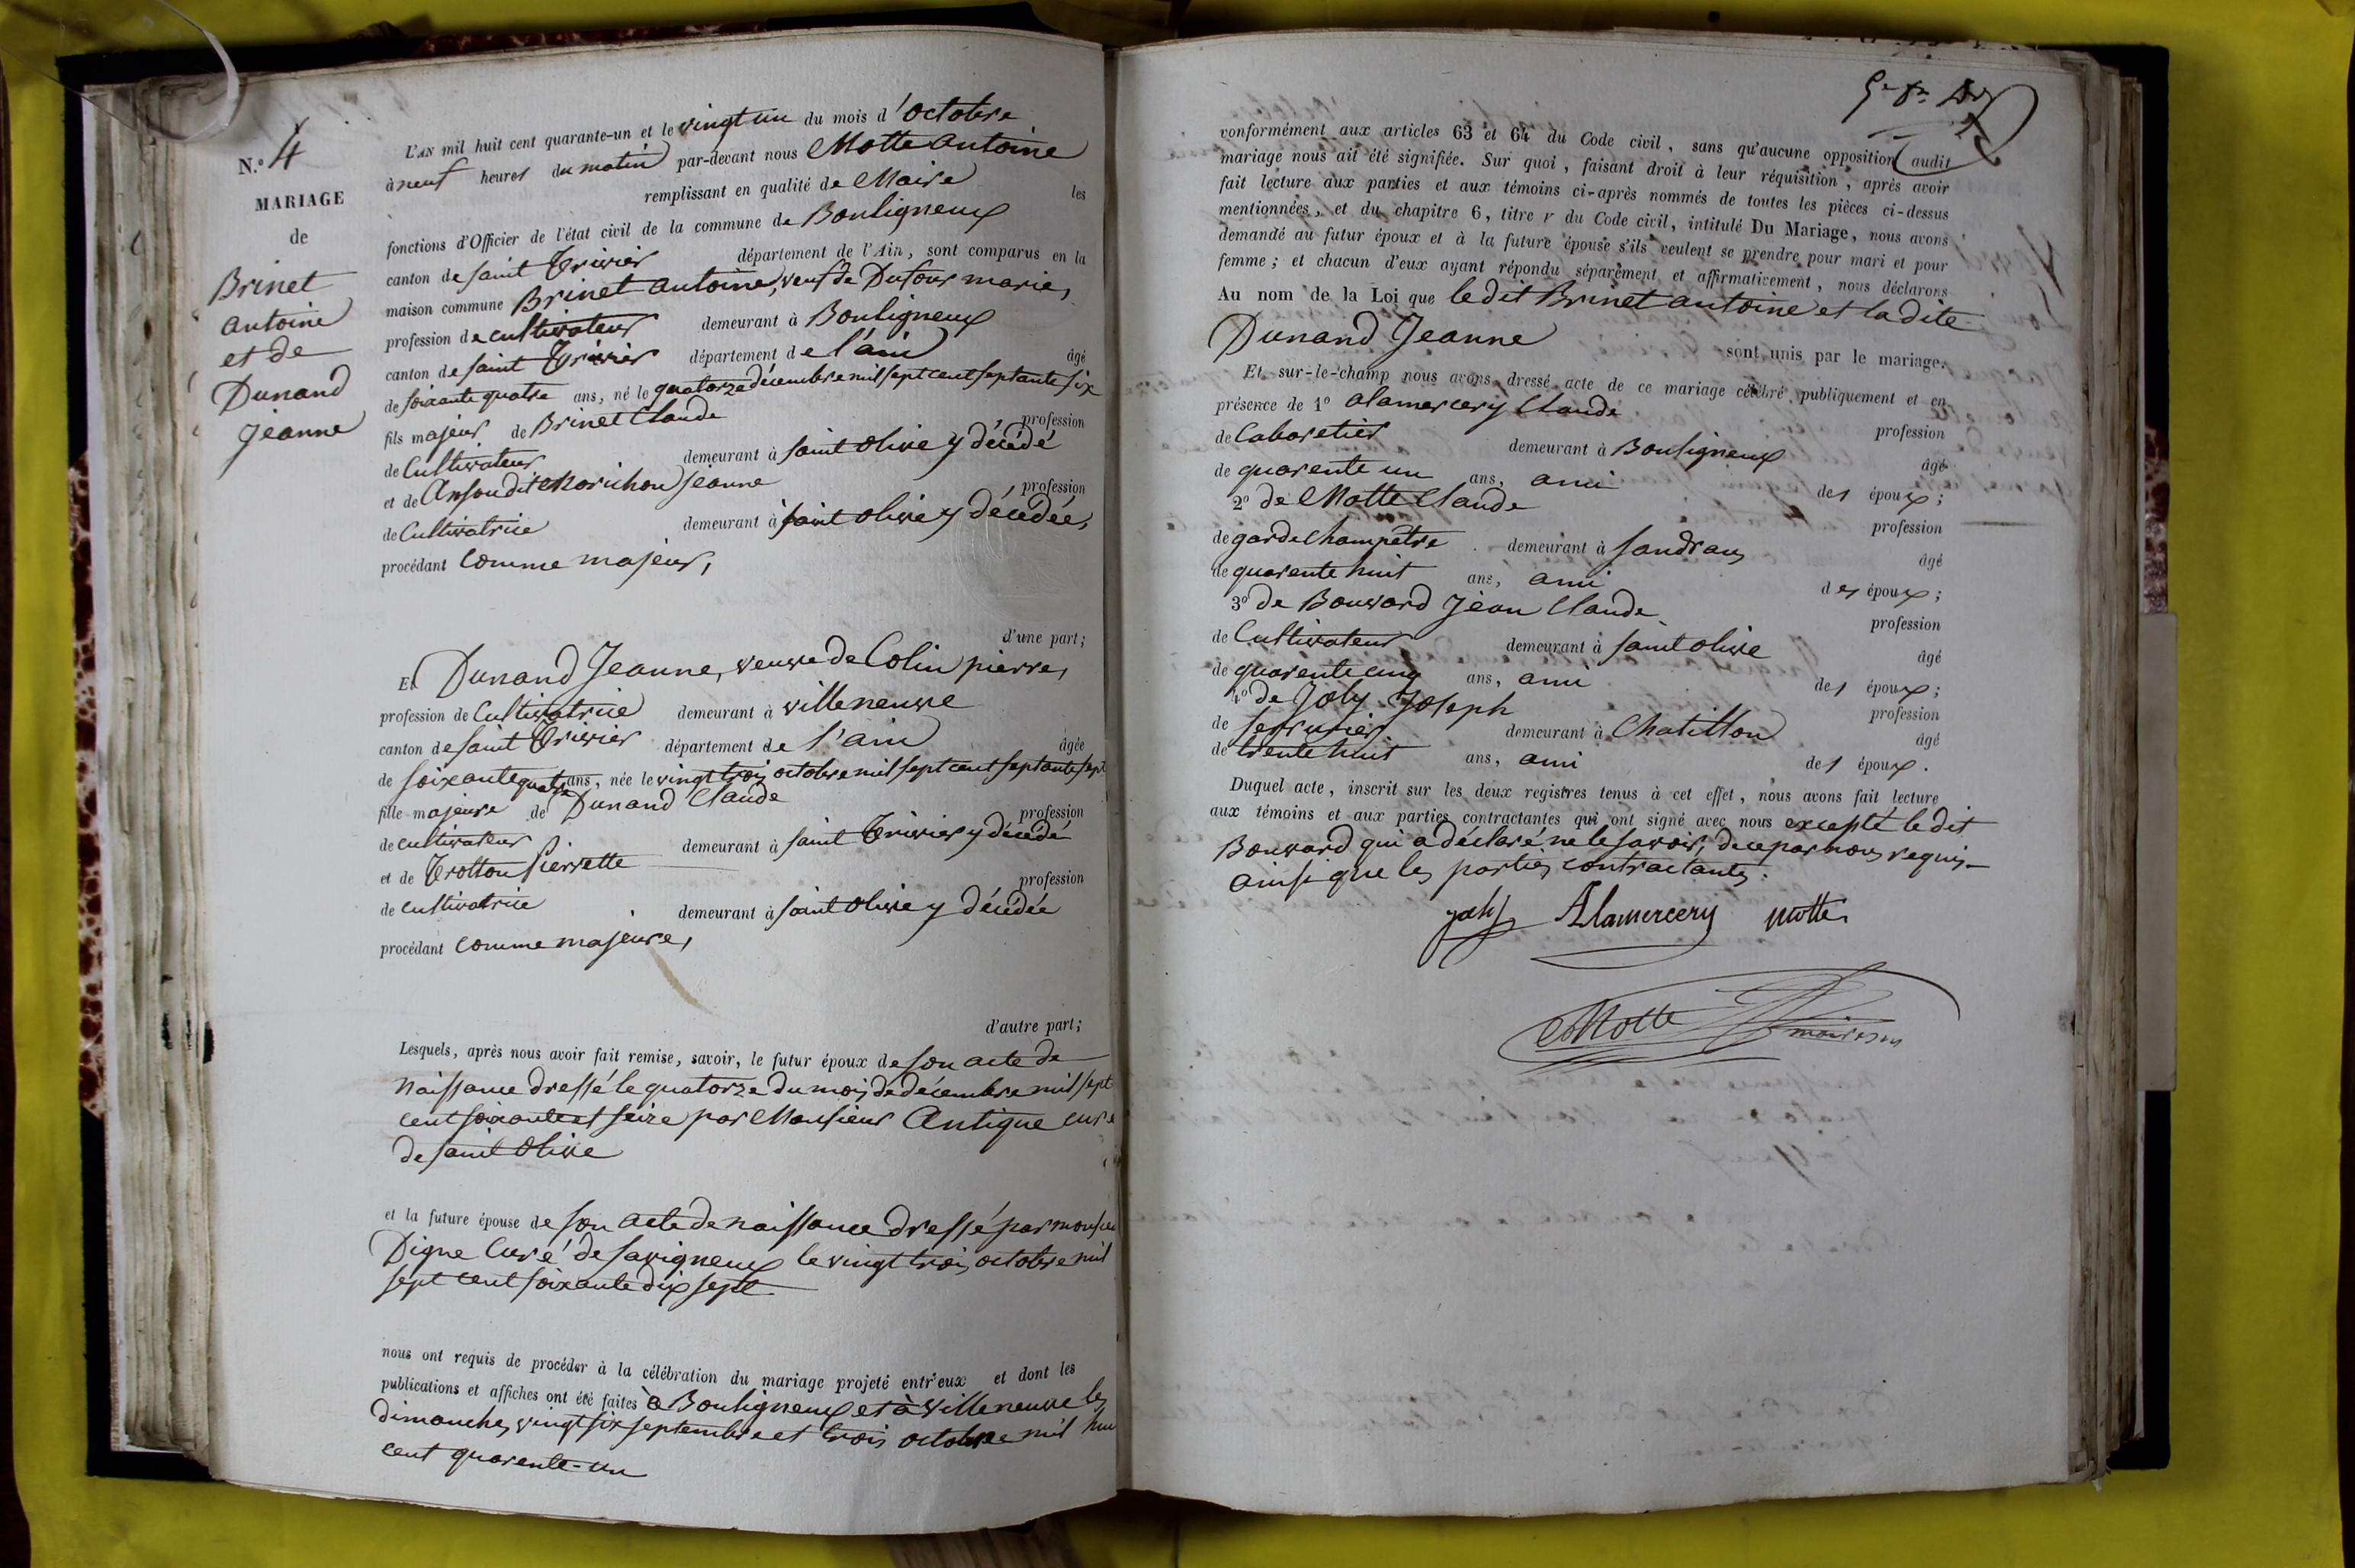 N.º 4
MARIAGE
de
Brinet
antoine
et de
Dunand
Jeanne
L'AN mil huit cent quarante-un et le vingt un du mois d'octobre
à neuf heures du matin par-devant nous Motte antoine
remplissant en qualité de Maire les
fonctions d'Officier de l'état civil de la commune de Bouligneux
canton de saint Trivier département de l'Ain, sont comparus en la
maison commune Brinet antoine, veuf de Dufour marie,
profession de cultivateur demeurant à Bouligneux
canton de saint Trivier département de l'ain âgé
de soixante quatre ans, né le quatorze décembre mil sept cent septante six
fils majeur de Brinet Claude profession
de Cultivateur demeurant à saint olive y décédé
et de dit Marichon jeanne profession
de Cultivatrice demeurant à saint olive y décédée,
procédant comme majeur,
d'une part;
Et Dunand Jeanne, veuve de Colin pierre,
profession de Cultivatrice demeurant à villeneuve
canton de saint Trivier département de l'ain âgée
de soixante quatre ans, née le vingt trois octobre mil sept cent septante sept
fille majeure de Dunand Claude profession
de cultivateur demeurant à saint Trivier y décédé
et de Trotton Pierrette profession
de cultivatrice demeurant à saint olive y décédée
procédant comme majeure,
d'autre part;
Lesquels, après nous avoir fait remise, savoir, le futur époux de son acte de
naissance dressé le quatorze du mois de décembre mil sept
cent soixante et seize par Monsieur Antique curé
de saint Olive
et la future épouse de son acte de naissance dressé par monsieur
Digne Curé de savigneux le vingt trois octobre mil
sept cent soixante dix sept
nous ont requis de procéder à la célébration du mariage projeté entr'eux et dont les
publications et affiches ont été faites à Bouligneux et à villeneuve les
dimanches vingt six septembre et trois octobre mil huit
cent quarente-un
conformément aux articles 63 et 64 du Code civil, sans qu'aucune opposition audit
mariage nous ait été signifiée. Sur quoi, faisant droit à leur réquisition, après avoir
fait lecture aux parties et aux témoins ci-après nommés de toutes les pièces ci-dessus
mentionnées, et du chapitre 6, titre v du Code civil, intitulé Du Mariage, nous avons
demandé au futur époux et à la future épouse s'ils veulent se prendre pour mari et pour
femme; et chacun d'eux ayant répondu séparément et affirmativement, nous déclarons
Au nom de la Loi que le dit Brinet antoine et la dite
Dunand Jeanne sont unis par le mariage.
Et sur-le-champ nous avons dressé acte de ce mariage célébré publiquement et en
présence de 1º alamercery Claude profession
de Cabaretier demeurant à Bouligneux âgé
de quarente un ans, ami des époux;
2º de Motte Claude profession
de garde Champêtre demeurant à Sandrans âgé
de quarente huit ans, ami des époux;
3º de Bouvard Jean Claude profession
de Cultivateur demeurant à saint olive âgé
de quarente cinq ans, ami des époux;
4º de Joly Joseph profession
de serrurier demeurant à Chatillon âgé
de trente huit ans, ami des époux.
Duquel acte, inscrit sur les deux registres tenus à cet effet, nous avons fait lecture
aux témoins et aux parties contractantes qui ont signé avec nous excepté le dit
Bouvard qui a déclaré ne le savoir, de ce par nous requis
ainsi que les parties contractantes.
Joly Alamercery motte
Motte maire